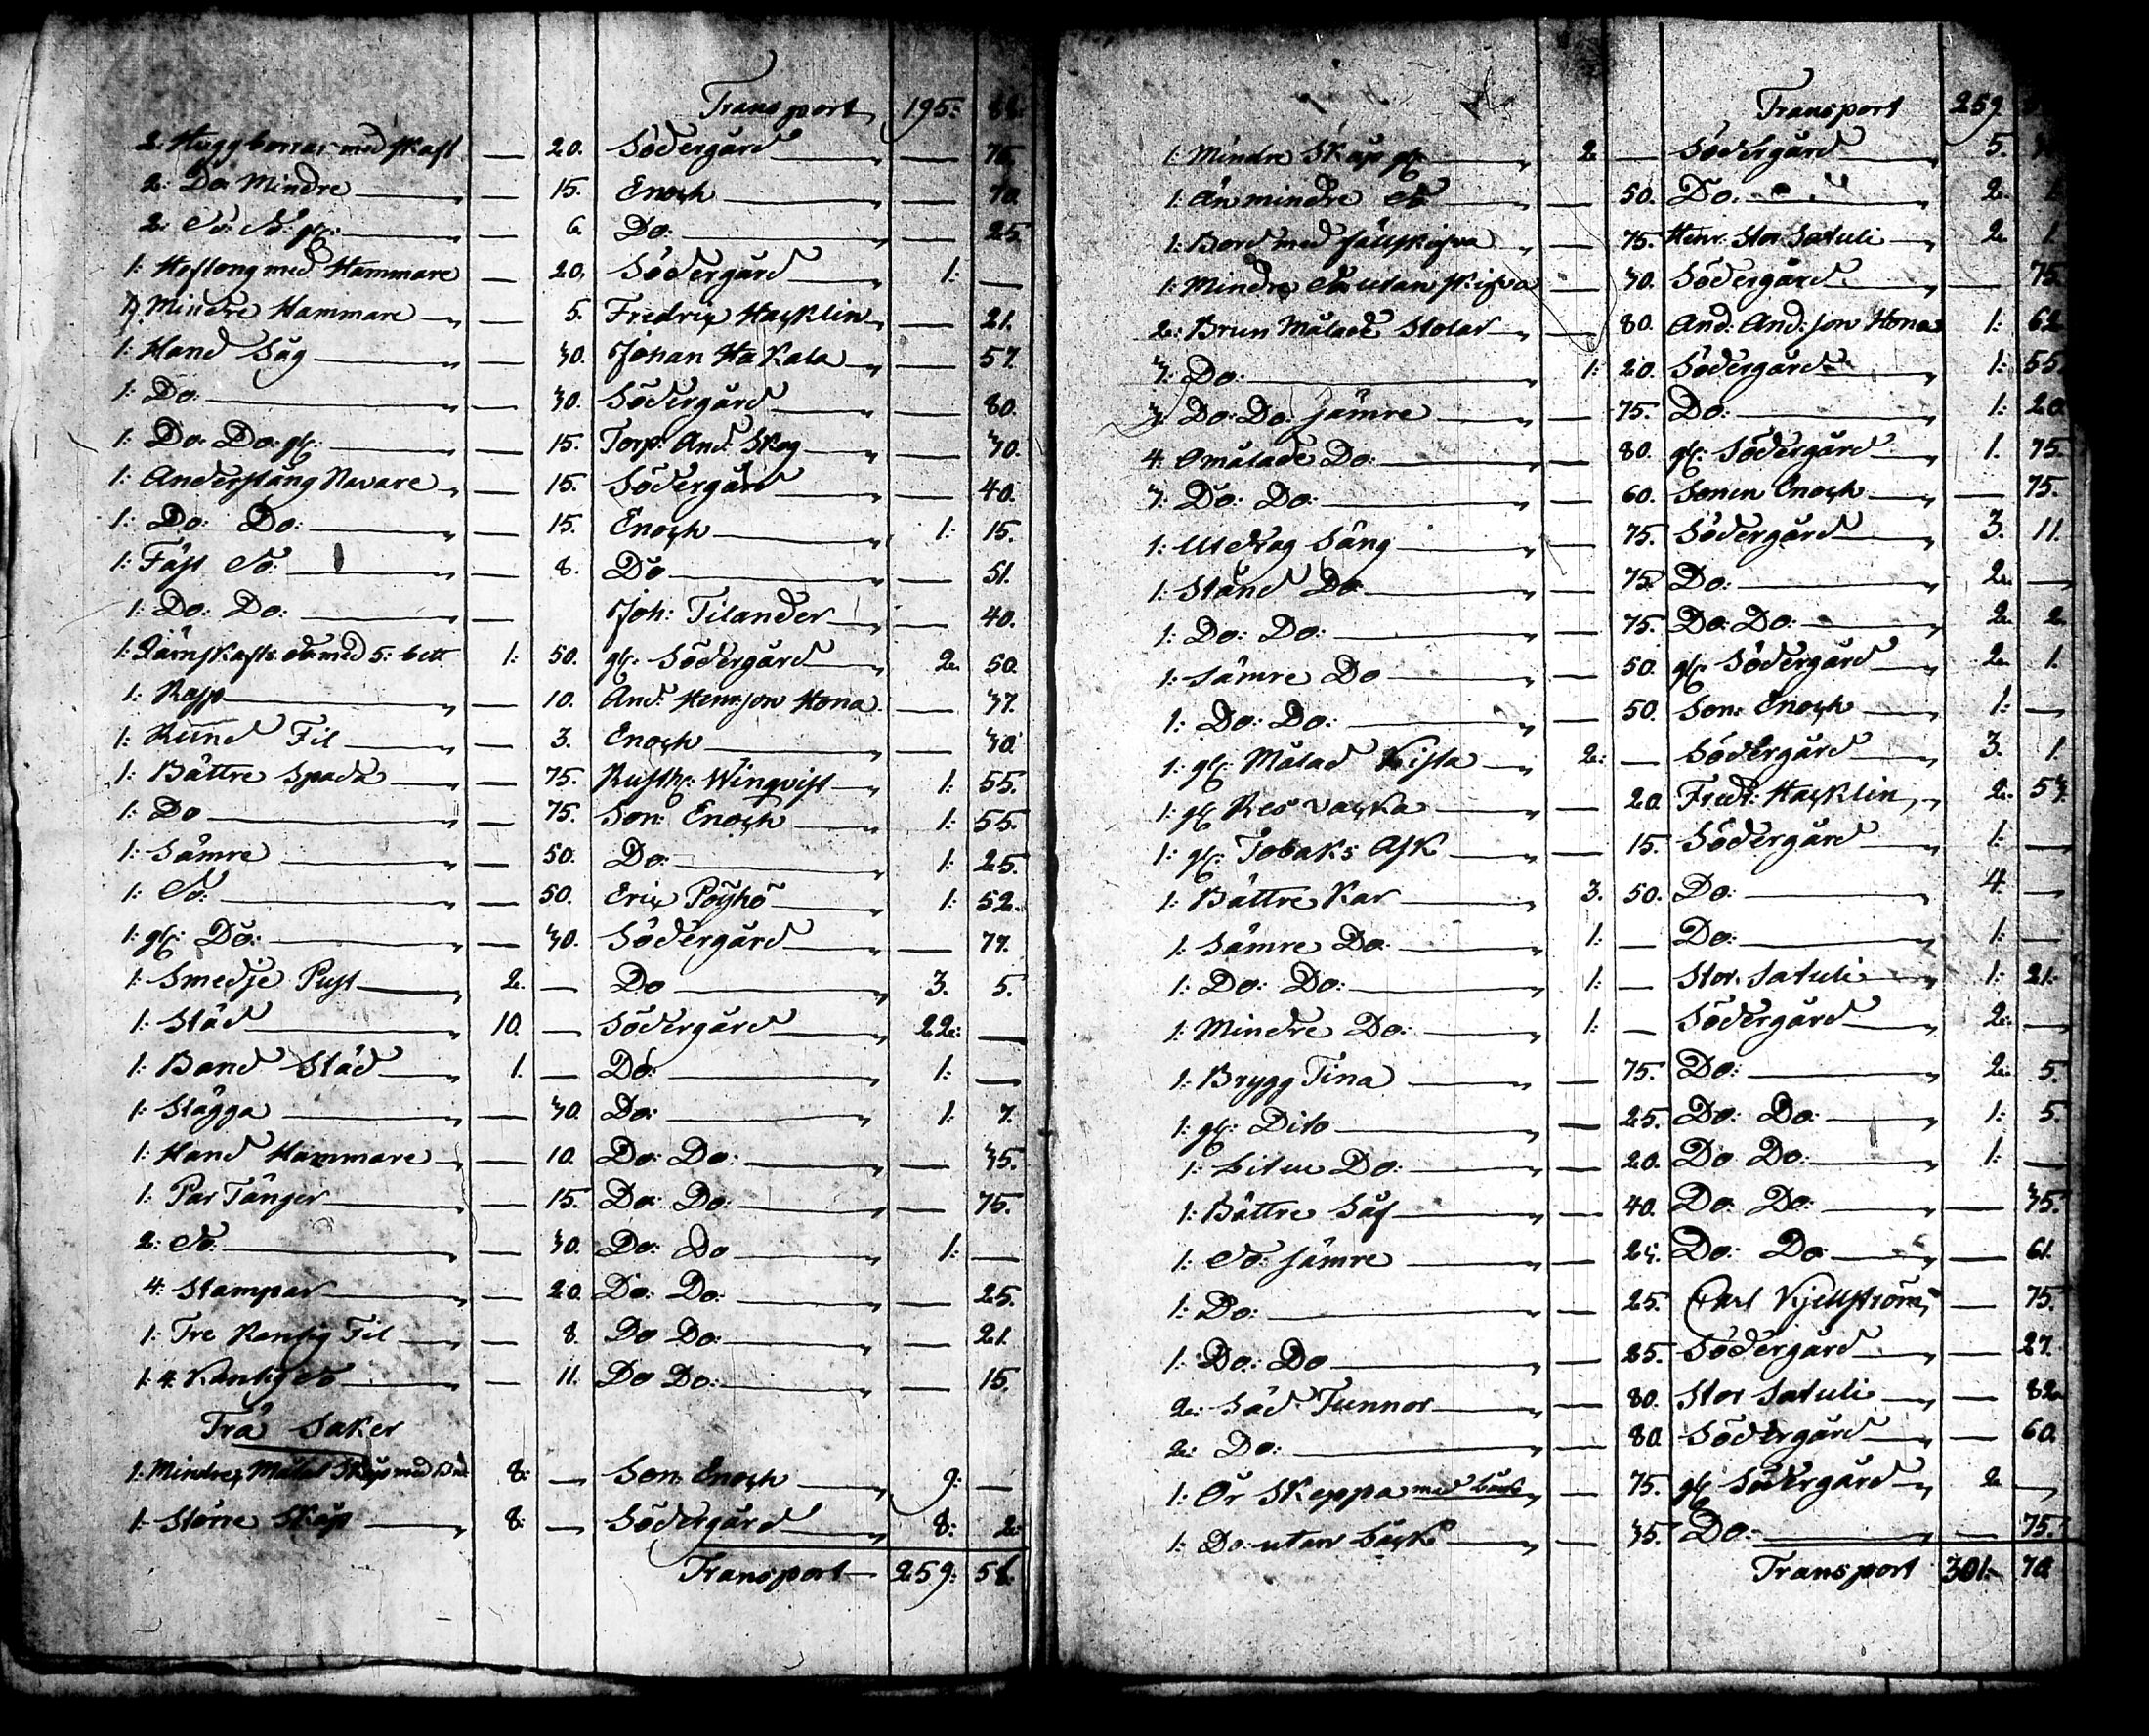 Transport 195: 88.
2: Huggborrar med skaft — 20. Södergård — 75.
2: Do Mindre — 15. Enoch — 70.
2: Do Do gl: — 6. Do: — 25.
1: Hoftong med Hammare — 20. Södergård 1: —
Mindre Hammare — 5. Fredric Hacklin — 21.
1: Hand Såg — 30. Johan Hakala — 57.
1: Do — 30. Södergård — 80.
1: Do Do: gl: — 15. Torp: And: Skog — 30.
1: Anderstång Navare — 15. Södergård — 40.
1: Do: Do: — 15. Enoch 1: 15.
1: Fäst Do: — 8. Do — 51.
1: Do: Do: — Joh: Tilander — 40.
1: do med 5: bett 1: 50. gl: Södergård 2: 50.
1: Rasp — 10. And: Henr:son Hona — 37.
1: Rund Fil — 3. Enoch — 30.
1: Bättre Spada — 75. Rusth: Winqvist 1: 55.
1: Do — 75. Son: Enoch 1: 55.
1: Sämre — 50. Do: 1: 25.
1: Do: — 50. Eric Pöyhö 1: 52.
1: gl: Do: — 30. Södergård — 77.
1: Smedje Pust 2. — Do 3. 5.
1: Städ 10. — Södergård 22: —
1: Band Städ 1. — Do: 1: —
1: Slägga — 30. Do: 1: 7.
1: Hand Hammare — 10. Do: Do: — 35.
1: Par Tänger — 15. Do: Do: — 75.
2: Do: — 30. Do: Do 1: —
4: Stampar — 20. Do: Do: — 25.
1: Tre Kantig Fil — 8. Do Do: — 21.
1: 4 Kantig do — 11. Do Do: — 15.
Trä Saker
1: Mindre Målat Skåp med 8: — Son Enoch 9: —
1: Större Skåp 8: — Södergård 8: 2:
Transport 259: 51.
Transport 259.
1: Mindre Skåp gl: 2. — Södergård 5.
1: Än mindre Do — 50. Do: 2.
1: Bord med fällskifva — 75. Henr. Stor Satuli 2. 1.
1: Mindre Do utan skifva — 30. Södergård — 75.
2: Brun Målade Stolar — 80. And: And:son Hona 1: 62.
3: Do: 1: 20. Södergård 1: 55.
3: Do: Do: sämre — 75. Do: 1: 20.
4: Omålade Do: — 80. gl: Södergård 1. 75.
3: Do: Do: — 60. Sonen Enoch — 75.
1: Utdrag Säng — 75. Södergård 3. 11.
1: Ständ Do — 75. Do: 2. —
1: Do: Do: — 75. Do: Do: 2. 2.
1: Sämre Do — 50. gl: Södergård 2. 1.
1: Do: Do: — 50. Son: Enoch 1: —
1: gl: Målad Kista 2: — Södergård 3. 1.
1: gl: Res väska — 20. Fredr: Hacklin 2. 53.
1: gl: Tobaks Ask — 15. Södergård 1: —
1: Bättre Kar 3. 50. Do: 4. —
1: Sämre Do: 1: — Do: 1: —
1: Do: Do: 1: — Stor. Satuli 1: 21.
1: Mindre Do: 1: — Södergård 2: —
1: Brygg Tina — 75. Do: 2: 5.
1: gl: Dito — 25. Do: Do: 1: 5.
1: Liten Do: — 20. Do Do: 1: —
1: Bättre Så — 40. Do: Do: — 35.
1: Do: sämre — 24. Do: Do: — 61.
1: Do: — 25. Carl Kjellström — 75.
1: Do: Do — 25. Södergård — 27.
2: Säd Tunnor — 80. Stor Satuli — 82.
2: Do: — 80. Södergård — 60.
1: Ör Skeppa med — 75. gl: Södergård 2 —
1: Do: utan — 35. Do: — 75.
Transport 301: 70